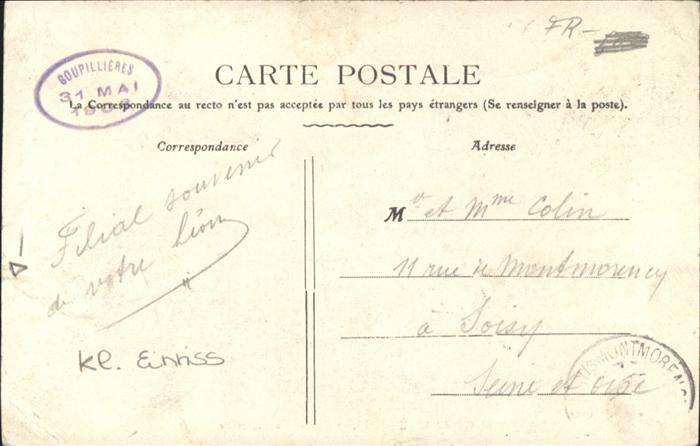 FR-
GOUPILLIÈRES
31 MAI
CARTE POSTALE
La Correspondance au recto n'est pas acceptée par tous les pays étrangers (Se renseigner à la poste).
Correspondance
Filial souvenir
de votre Léon
Kl. Einriss
Adresse
Mr et Mme Colin
11 rue de Montmorency
à Soisy
Seine et Oise
MONTMORENC